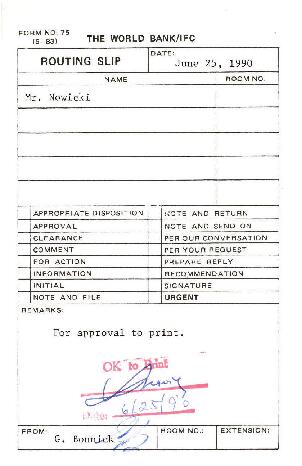 FORM NO. 75
(5-83)
THE WORLD BANK/IFC
ROUTING SLIP
DATE:
June 25, 1990
NAME
ROOM NO.
Mr. Nowicki
APPROPRIATE DISPOSITION
NOTE AND RETURN
APPROVAL
NOTE AND SEND ON
CLEARANCE
PER OUR CONVERSATION
COMMENT
PER YOUR REQUEST
FOR ACTION
PREPARE REPLY
INFORMATION
RECOMMENDATION
INITIAL
SIGNATURE
NOTE AND FILE
URGENT
REMARKS:
For approval to print.
OK to Print
Date: 6/25/90
FROM:
G. Bonnick
ROOM NO.:
EXTENSION: